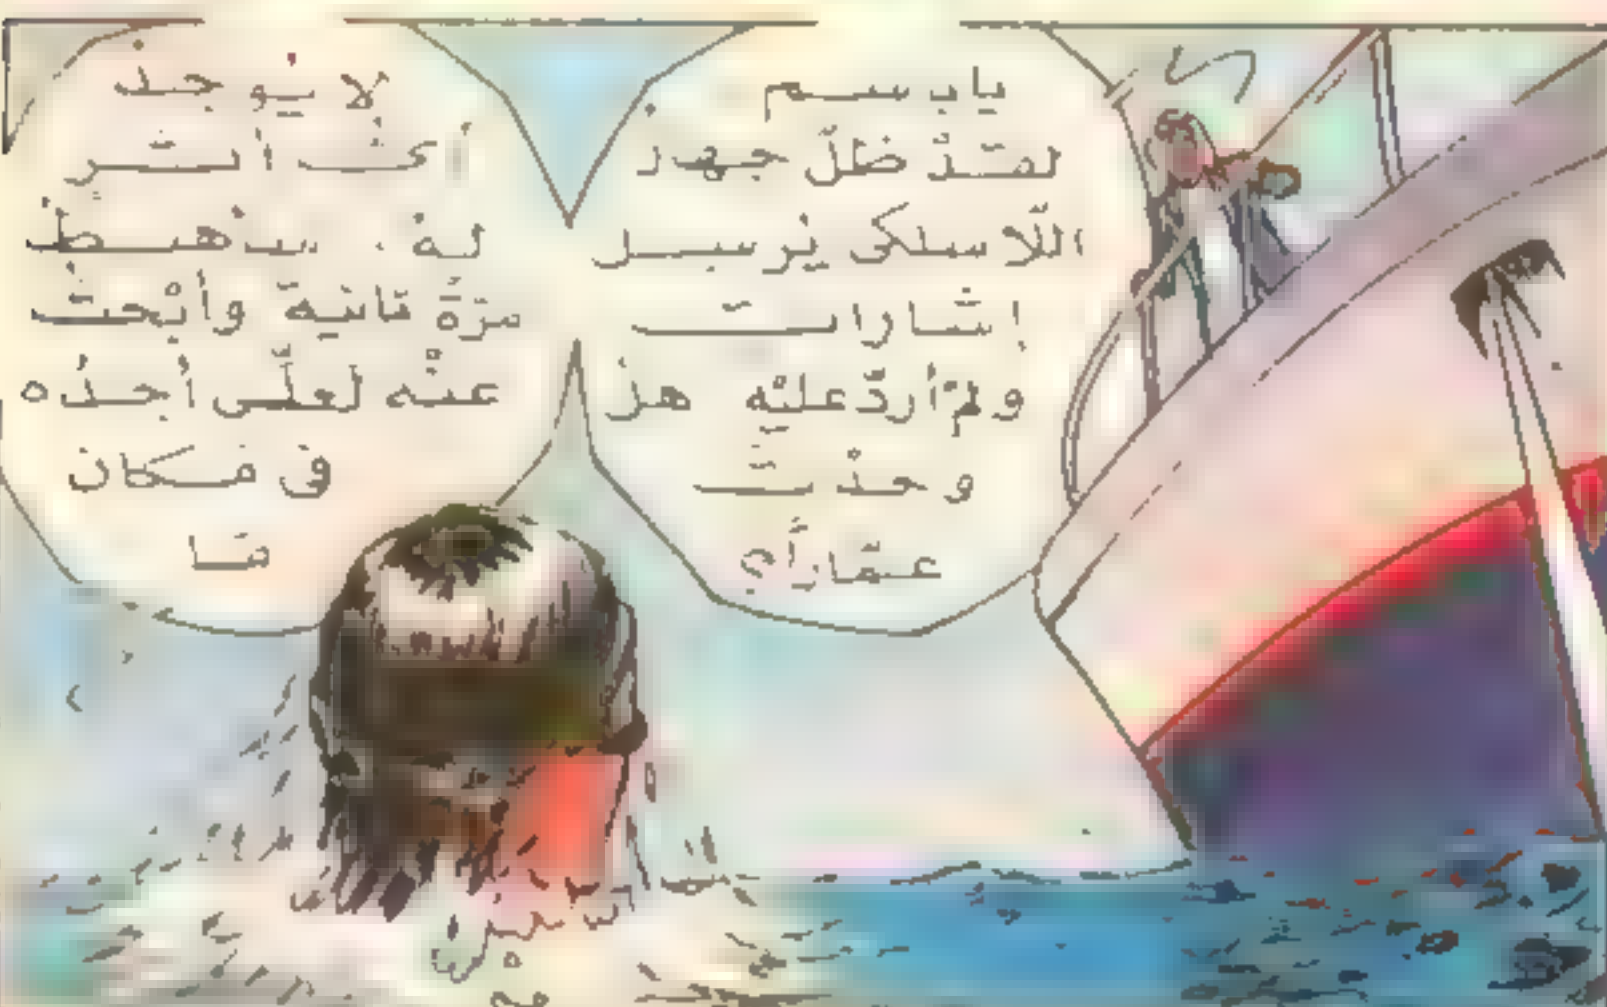 يا باسم
لقدْ ظلّ جهاز
اللّاسلكى يُرسل
إشارات
ولمْ أردّ عليْه هل
وجدْت
عمّار؟
لا يُوجد
أىُّ أثر
لهُ. سأهبط
مرّةً ثانيةً وأبْحث
عنْه لَعلّى أجدُه
فى مَكان
مَا